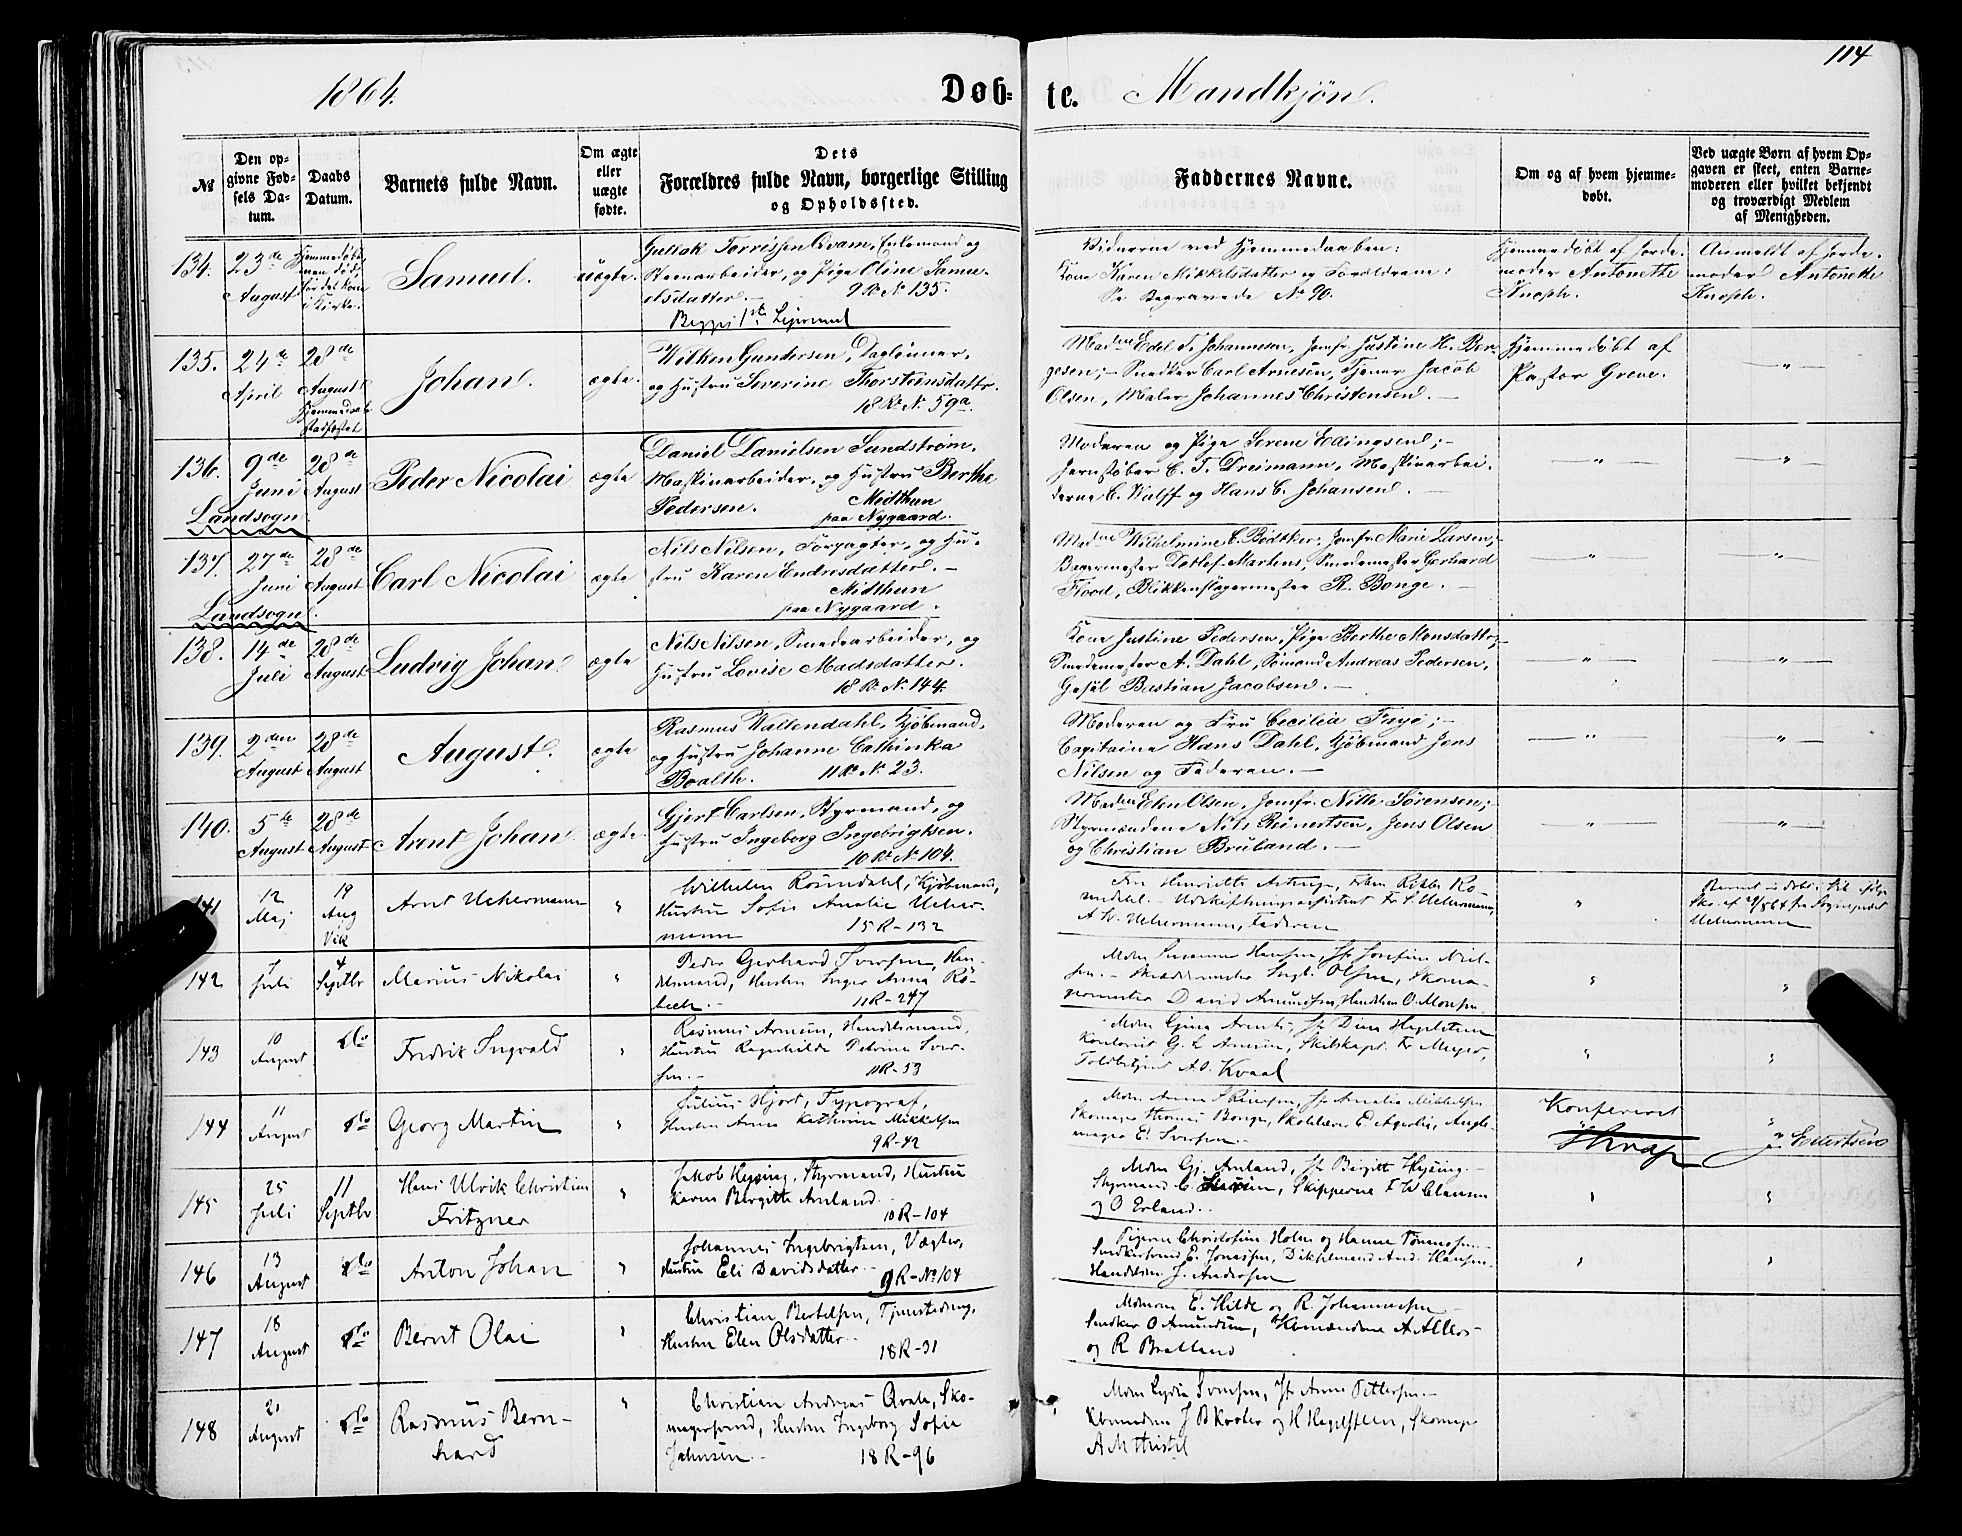 114
1864.
Døb= te. Mandkjøn.
№
Den op=
givne Fød=
sels Da=
tum.
Daabs
Datum.
Barnets fulde Navn.
Om ægte
eller
uægte
fødte.
Dets
Forældres fulde Navn, borgerlige Stilling
og Opholdssted.
Faddernes Navne.
Om og af hvem hjemme=
døbt.
Ved uægte Børn af hvem Op=
gaven er skeet, enten Barne=
moderen eller hvilket bekjendt
og troværdigt Medlem
af Menigheden.
134.
23de
August
Hjemmedøbt
men død
før det kom
i Kirke.
Samuel.
uægte.
Torrissen Qvam, Enkemand og
arbeider, og Pige Oline Samu-
elsdatter.
9 R. N. 135.
Vidnerne ved Hjemmedaaben:
Kone Karen Mikkelsdatter og Forældrene:
Se Begravede No 90.
Hjemmedøbt af Jorde-
moder Antonette
Knoph.
Anmeldt af Jorde-
moder Antonette
Knoph.
135.
24de
April
28de
August
Hjemmedaab
stadfæstet
Johan.
ægte.
Wilken Gundersen, Dagleiner,
og Hustru Severine Thorsteinsdattr.
18 R. N. 59a.
Madme Edel T. Johannesen, Jomfr. Justine H. Ber-
gesen; - Snedker Carl Arnesen, Tjener Jacob
Olsen, Maler Johannes Christensen. -
Hjemmedøbt af
Pastor Greve.
- " -
136.
9de
Juni
Landsogn.
28de
August
Peder Nicolai
ægte
Daniel Danielsen Sundstrøm,
Maskinarbeider, og Hustru Berthe
Pedersen.
Midthun
paa Nygaard.
Moderen og Pige Serene Edingsen; -
Jernstøber C. T. Dreimann, Maskinarbei-
derne C. Wulff og Hans C. Johansen. -
- " -
- " -
137.
27de
Juni
Landsogn.
28de
August
Carl Nicolai
ægte
Nils Nilsen, Forpagter, og Hu-
stru Karen Endresdatter. -
Midthun
paa Nygaard.
Madme Wilhelmine C. Bødtker, Jomfr. Marie Larsen, -
Bagermester Detlef Martens, Smedemester Gerhard
Flood, Blikkenslagermester R. Bonge. -
- " -
- " -
138.
14de
Juli
28de
August
Ludvig Johan.
ægte
Nils Nilsen, Smedearbeider, og
Hustru Lovise Madsdatter.
18 R. N. 144.
Kone Justine Pedersen, Pige Berthe Monsdattr, -
Smedemester A. Dahl, Sømand Andreas Pedersen,
Gesel Bastian Jacobsen. -
- " -
- " -
139.
2den
August
28de
August
August.
ægte
Rasmus Wallendahl, Kjøbmand,
og Hustru Johanne Cathinka
Boalth.
11 R. N. 23.
Moderen og Fru Cecilia Frye; -
Capitaine Hans Dahl, Kjøbmand Jens
Nilsen og Faderen. -
- " -
- " -
140.
5te
August
28de
August
Arent Johan.
ægte.
Gjert Carlsen, Styrmand, og
Hustru Ingeborg Ingebrigtsen.
10 R. N. 104.
Madme Elen Olsen, Jomfr. Nille Sørensen; -
Styrmændene Nils Reinertsen, Jens Olsen
og Christian Brüland. -
- " -
- " -
141
12
Maj
19
Aug
Vik
Arnt Uchermann
"
Wilhelm Romdahl, Kjøbmand,
Hustru Sofie Amalie Ucher-
mann
15 R - 132
Fru Henriette Astrup,
A W. Uchermann, Faderen
"
Uchermann
142
7
Juli
4
Septbr
Marius Nikolai
"
Peder Gerhard Iversen, Han-
delsmand, Hustru Inger Anna Rø-
beck. -
11 R - 247
Mdm Susanne Hansen, Jf Josefine Niel-
sen. - Skræddermester Ingb. Olsen, Skoma-
germester David Amundsen, Handlsm O. Monsen
"
"
143
10
August
do
Fredrik Ingvald
"
Rasmus Arnesen, Handelsmand,
Hustru Ragnhilde Petrine Iver-
sen. -
11 R - 53
Toldbetjent A O. Kvaal
"
"
144
11
August
do
Georg Martin
"
Julius Hjort, Typograf,
Hustru Anne Kathrine Mikkelsen
9 R - 42
Konfereret
"
145
25
Juli
11
Septbr
Hans Ulrik Christian
Fritzner
"
Jakob Hysing, Styrmand, Hustru
Karen Birgitte Amland.
10 R - 104
Mdm Gj. Amland, Jf Birgitte Hysing. -
Skipperne F W Clausen
og O Erland. -
"
"
146
13
August
do
Anton Johan
"
Johannes Ingebrigtsen, Vægter,
Hustru Eli Davidsdatter. -
9 R - No 104
Pigerne Christofine Holm og Hanne Tønnesen. -
"
"
147
18
August
do
Bernt Olai
"
Christian Bertelsen, Tjenstedreng,
Hustru Elen Olsdatter. -
18 R - 31
Mdmerne E. Hilde og R. Johannessen -
Snedker O Amundsen,
og R Bratland
148
21
August
do
Rasmus Bern-
hard
"
Christian Andreas Qvale, Sko-
magersvend, Hustru Ingeborg Sofie
Johnsen. -
18 R - 96
Mdm Lydia Iversen, Jf Anne Pettersen. -
og H Hagelsteen, Skomager